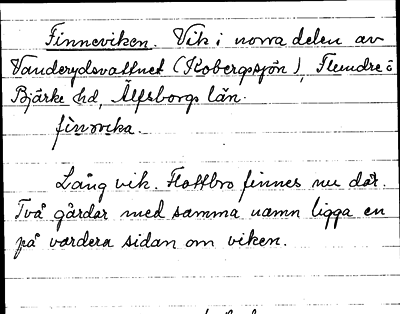 Finneviken. Vik i norra delen av
Vanderydsvattnet (Kobergssjön),
Bjärke hd, Älfsborgs län.
finvika.
Lång vik. Flottbro finnes nu där.
Två gårdar med samma namn ligga en
på vardera sidan om viken.